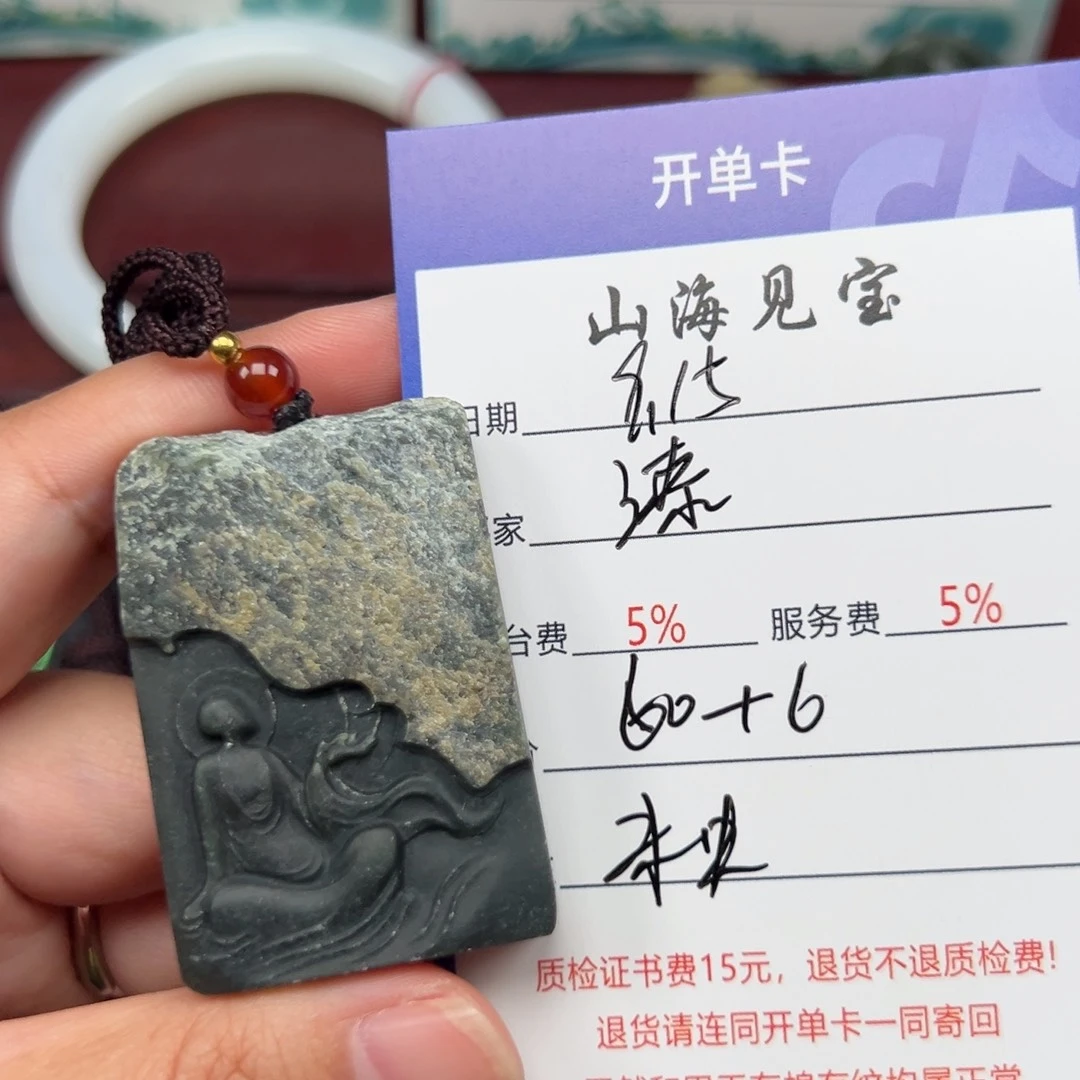 开单卡
山海见宝
日期
家 臻
台费 5% 服务费 5%
60+6
质检证书费15元，退货不退质检费！
退货请连同开单卡一同寄回